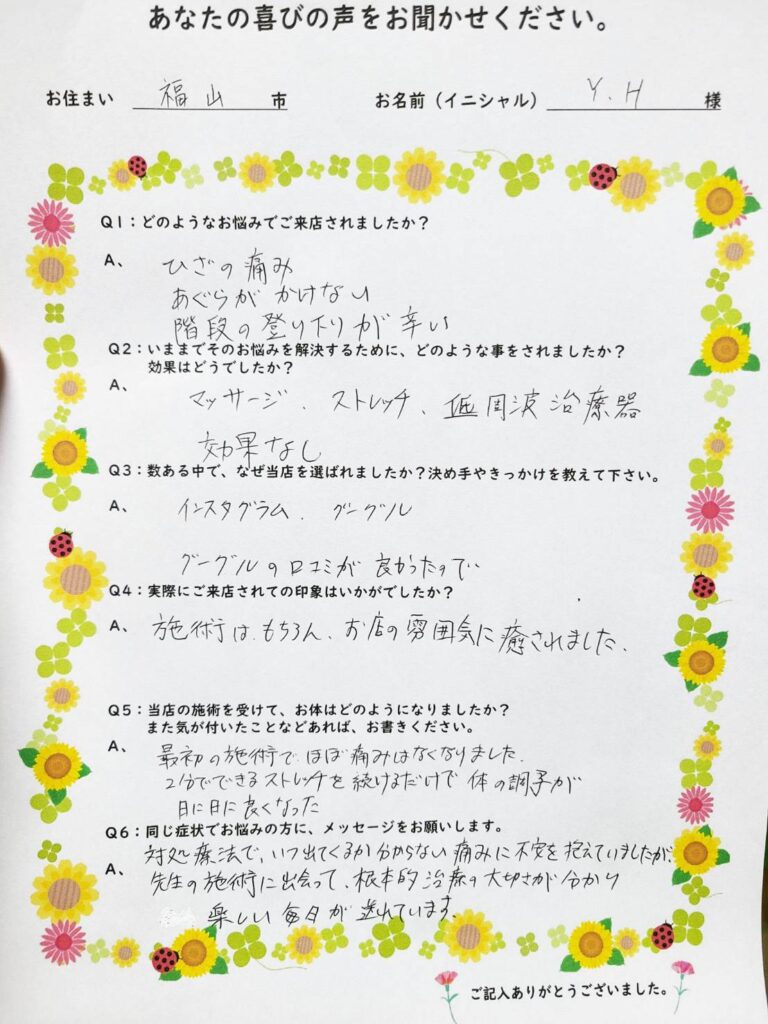 あなたの喜びの声をお聞かせください。
お住まい 福山 市 お名前（イニシャル） Y.H 様
Q1：どのようなお悩みでご来店されましたか？
A、 ひざの痛み
あぐらが かけない
階段の登り下りが辛い
Q2：いままでそのお悩みを解決するために、どのような事をされましたか？
効果はどうでしたか？
A、 マッサージ、ストレッチ、低周波治療器
効果なし
Q3：数ある中で、なぜ当店を選ばれましたか？決め手やきっかけを教えて下さい。
A、 インスタグラム、グーグル
グーグルの口コミが 良かったので
Q4：実際にご来店されての印象はいかがでしたか？
A、 施術は、もちろん、お店の雰囲気に癒されました。
Q5：当店の施術を受けて、お体はどのようになりましたか？
また気が付いたことなどあれば、お書きください。
A、 最初の施術で ほぼ痛みはなくなりました。
2分でできるストレッチを続けるだけで 体の調子が
日に日に良くなった
Q6：同じ症状でお悩みの方に、メッセージをお願いします。
A、 対処療法で、いつ出てくるか分からない痛みに不安を抱えていましたが、
先生の施術に出会って、根本的治療の大切さが分かり
楽しい毎日が送れています。
ご記入ありがとうございました。